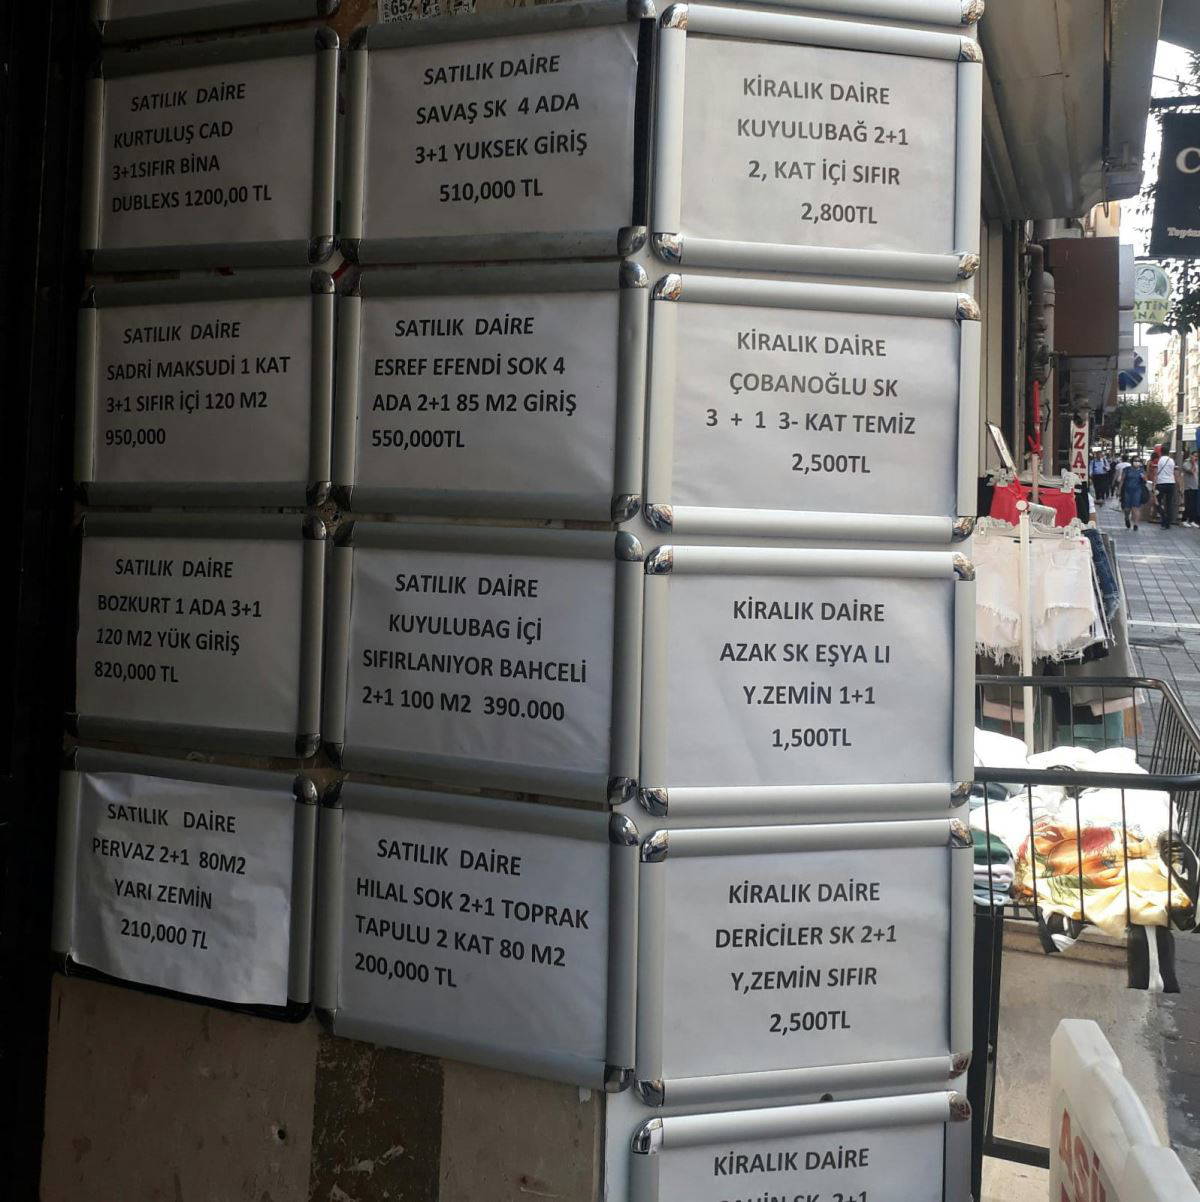 SATILIK DAİRE
KURTULUŞ CAD
3+1SIFIR BİNA
DUBLEXS 1200,00 TL
SATILIK DAİRE
SAVAŞ SK 4 ADA
3+1 YUKSEK GİRİŞ
510,000 TL
KİRALIK DAİRE
KUYULUBAĞ 2+1
2, KAT İÇİ SIFIR
2,800TL
SATILIK DAİRE
SADRİ MAKSUDİ 1 KAT
3+1 SIFIR İÇİ 120 M2
950,000
SATILIK DAİRE
ESREF EFENDİ SOK 4
ADA 2+1 85 M2 GİRİŞ
550,000TL
KİRALIK DAİRE
ÇOBANOĞLU SK
3 + 1 3- KAT TEMİZ
2,500TL
SATILIK DAİRE
BOZKURT 1 ADA 3+1
120 M2 YÜK GİRİŞ
820,000 TL
SATILIK DAİRE
KUYULUBAG İÇİ
SIFIRLANIYOR BAHCELİ
2+1 100 M2 390.000
KİRALIK DAİRE
AZAK SK EŞYA LI
Y.ZEMİN 1+1
1,500TL
SATILIK DAİRE
PERVAZ 2+1 80M2
YARI ZEMİN
210,000 TL
SATILIK DAİRE
HILAL SOK 2+1 TOPRAK
TAPULU 2 KAT 80 M2
200,000 TL
KİRALIK DAİRE
DERICİLER SK 2+1
Y,ZEMİN SIFIR
2,500TL
KİRALIK DAİRE
SK 2+1